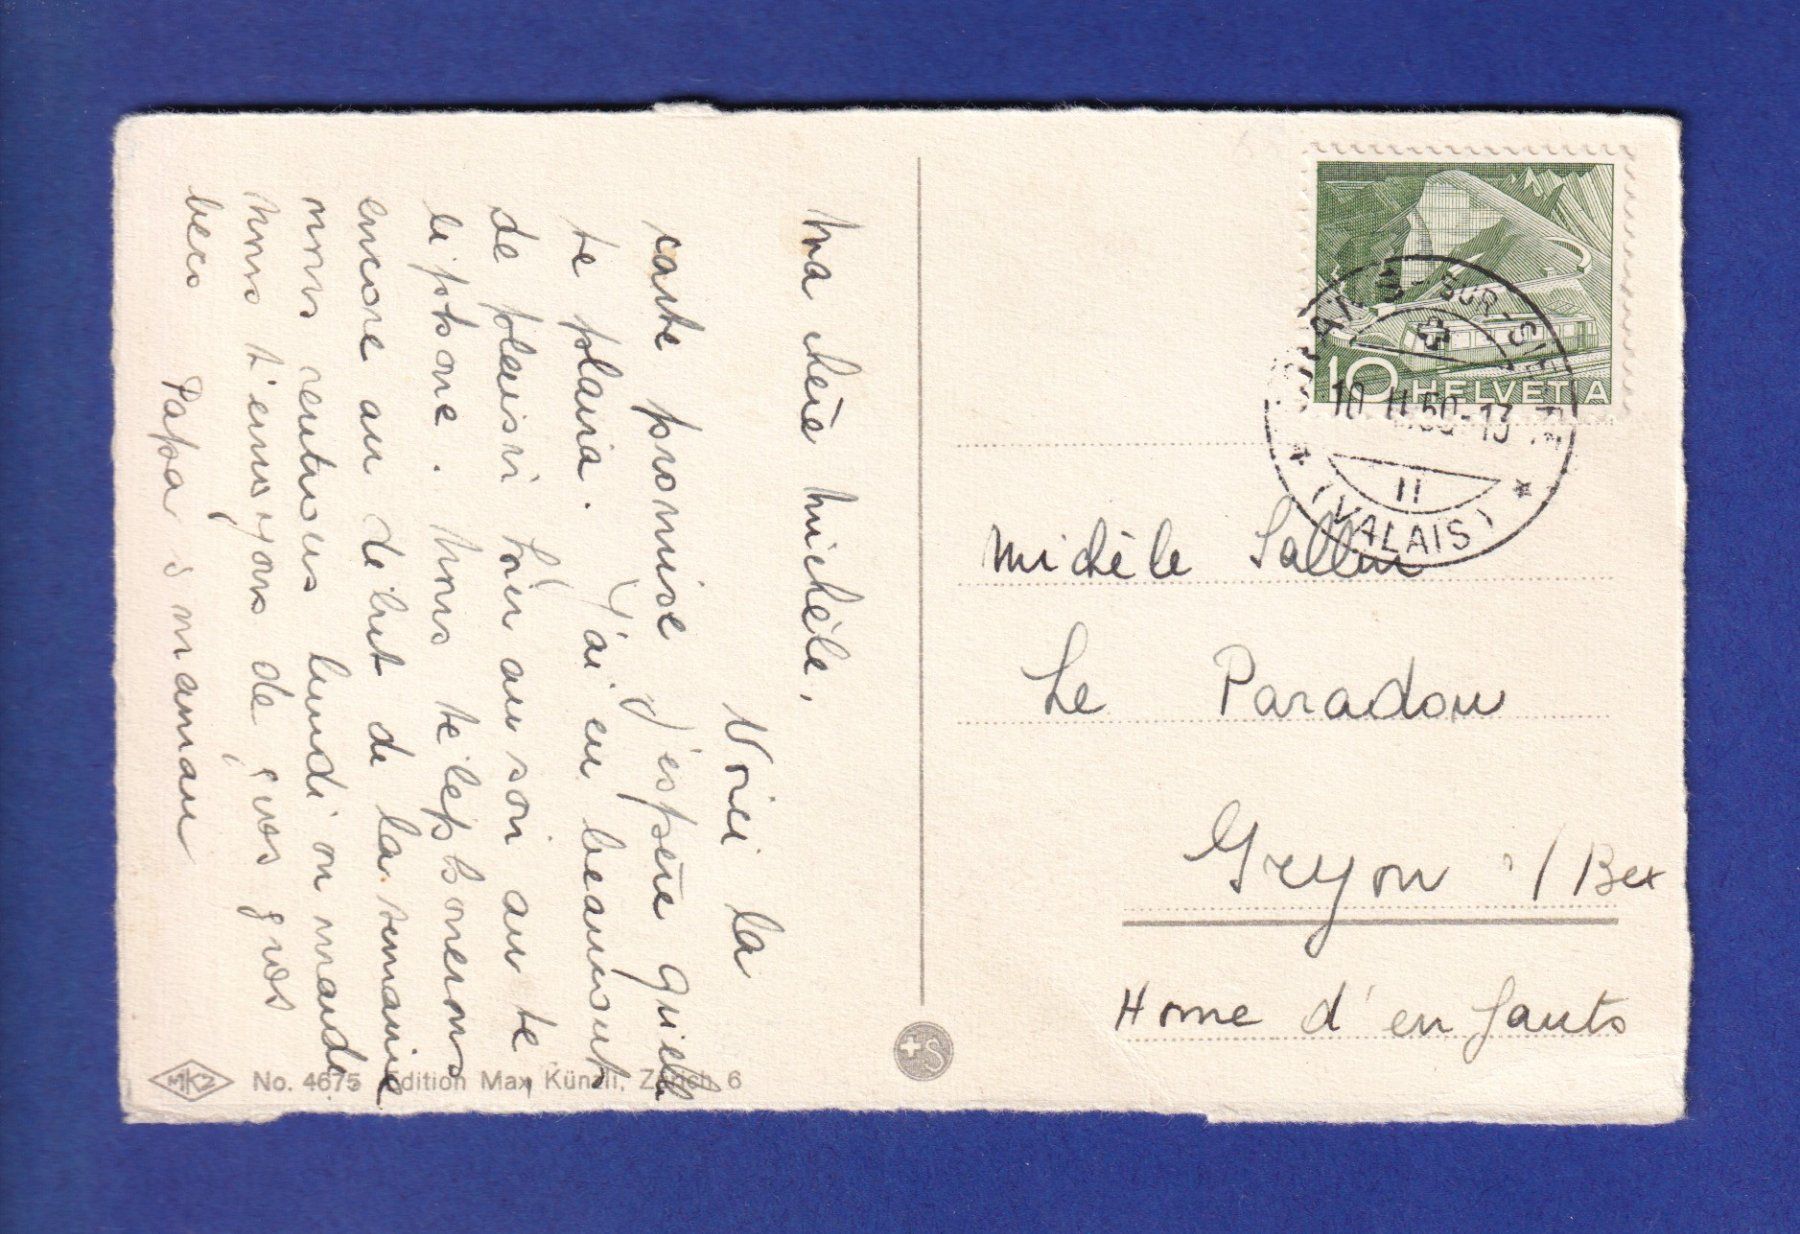 Ma chère Michèle,
Voici la
carte promise j'espère qu'elle
te plaira. J'ai eu beaucoup
de plaisir hier au soir au te
léphone. Nous téléphonerons
encore au début de la semaine
nous rentrons lundi on mardi.
Nous t'envoyons de gros gros
becs Papa & maman
HELVETIA
10
-SUR-SIERRE
10.II.50-13
II
(VALAIS)
Michèle
Le Paradou
Gryon s/Bex
Home d'enfants
MKZ No. 4675 Edition Max Künzli, Zürich 6
S